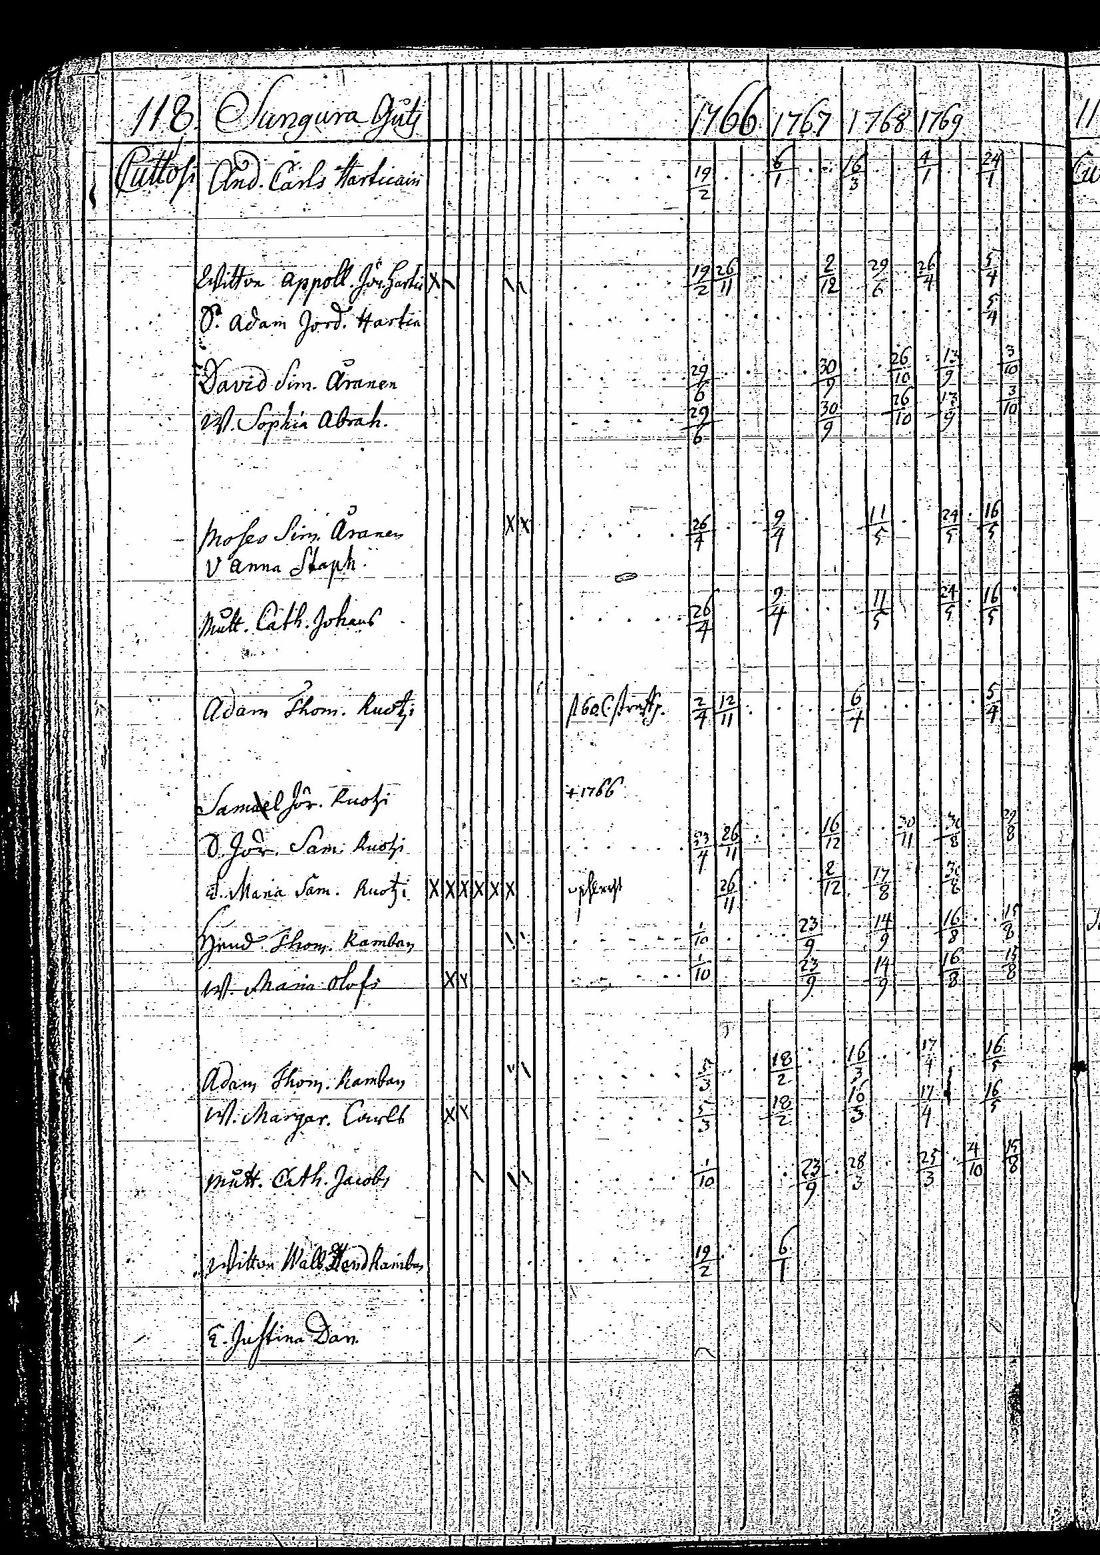 118. Sungura Gütz 1766 1767 1768 1769
Cuttosi And. Carls Harticain 19/2 6/1 16/3 4/1 24/1
Wittton Appoll. Jör. Harti X 19/2 26/11 2/12 29/6 26/4 5/4
S. Adam Jord. Hartin 5/4
David Sim. Åranen 29/6 30/9 26/10 13/9 3/10
W. Sophia Abrah. 29/6 30/9 26/10 13/9 3/10
Moses Sim. Åranen X X 26/4 9/4 11/5 24/5 16/5
V Anna Staph.
Mutt. Cath. Johans 26/4 9/4 11/5 24/5 16/5
Adam Thom. Ruotzi 2/4 12/11 6/4 5/4
Samuel Jör. Ruotzi +1766
S. Jör. Sam. Ruotzi 23/4 26/11 16/12 30/11 30/8 29/8
E. Maria Sam. Ruotzi X X X X X X 26/11 2/12 17/8 30/8
Hend. Thom. Ramban 1/10 23/9 14/9 16/8 15/8
W. Maria Olofs X 1/10 23/9 14/9 16/8 15/8
Adam Thom. Ramban 5/3 18/2 16/3 17/4 16/5
W. Margar. Courls X 5/3 18/2 16/3 17/4 16/5
Mutt. Cath. Jacobs 1/10 23/9 28/3 25/3 4/10 15/8
Witton Walb. Hend Ramba 19/2 6/1
E. Justina Dan.